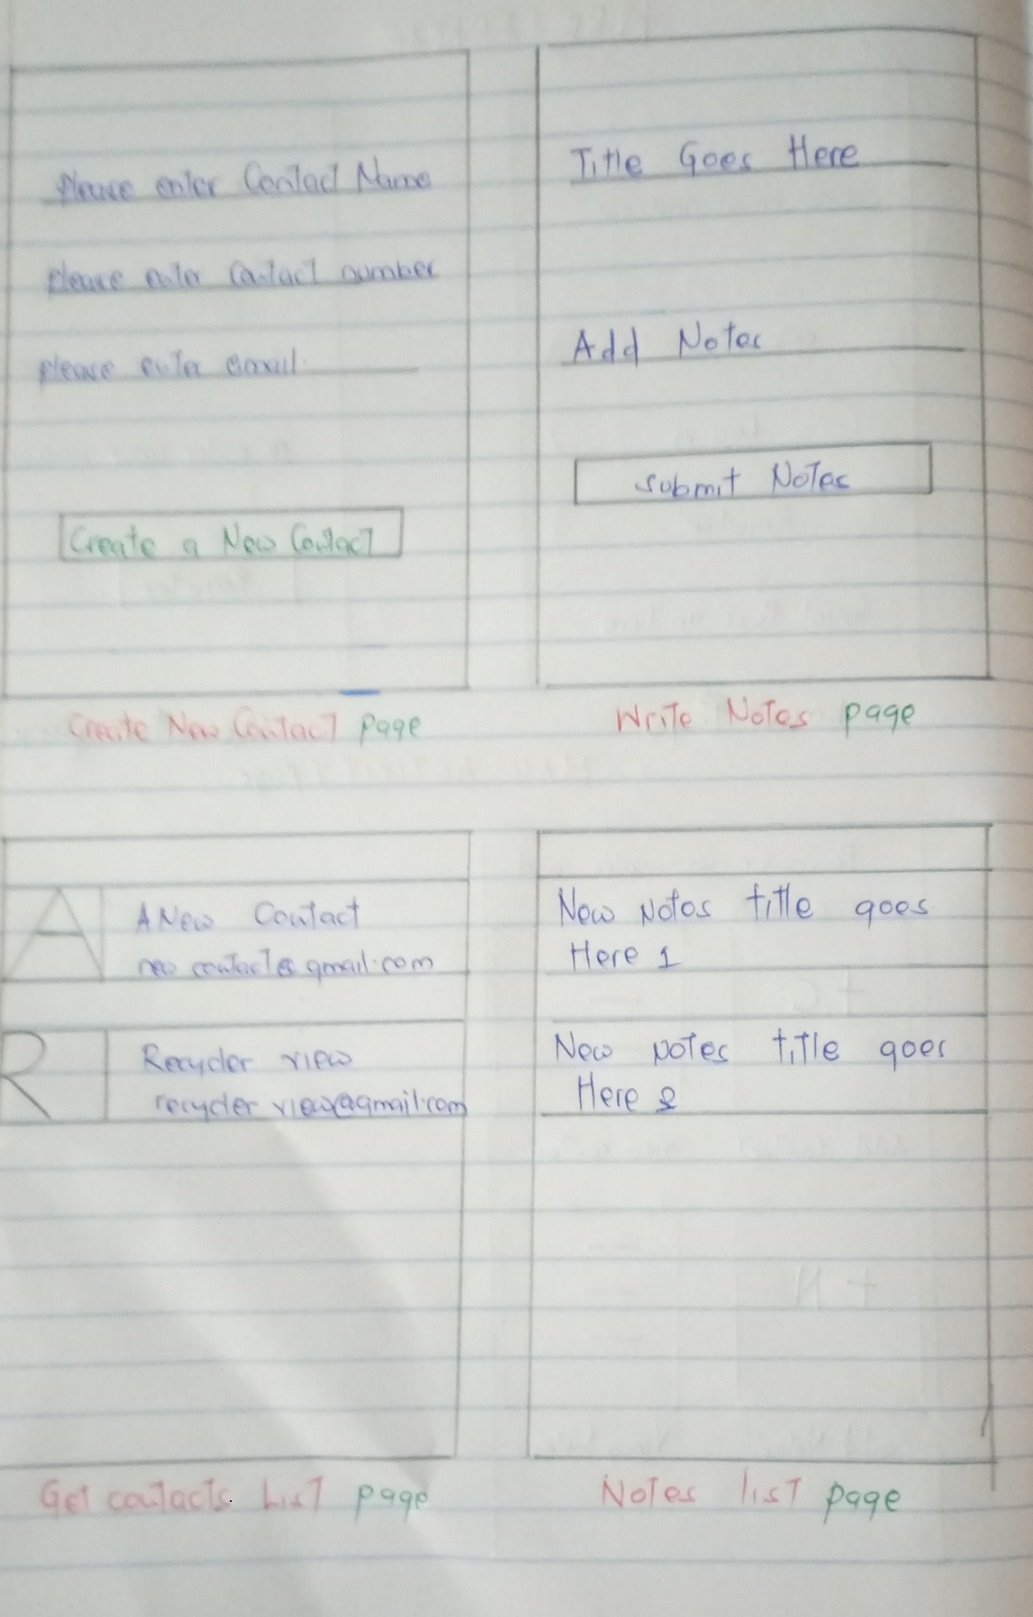 Please enter Contact Name
please enter Contact number
please enter email.
Create a New Contact
Create New Contact page
Title Goes Here
Add Notes
submit Notes
Write Notes page
A
A New Contact
new contact@gmail.com
R
Recycler view
recycler view@gmail.com
Get contacts. List page
New Notes title goes
Here 1
New Notes title goes
Here 2
Notes list page